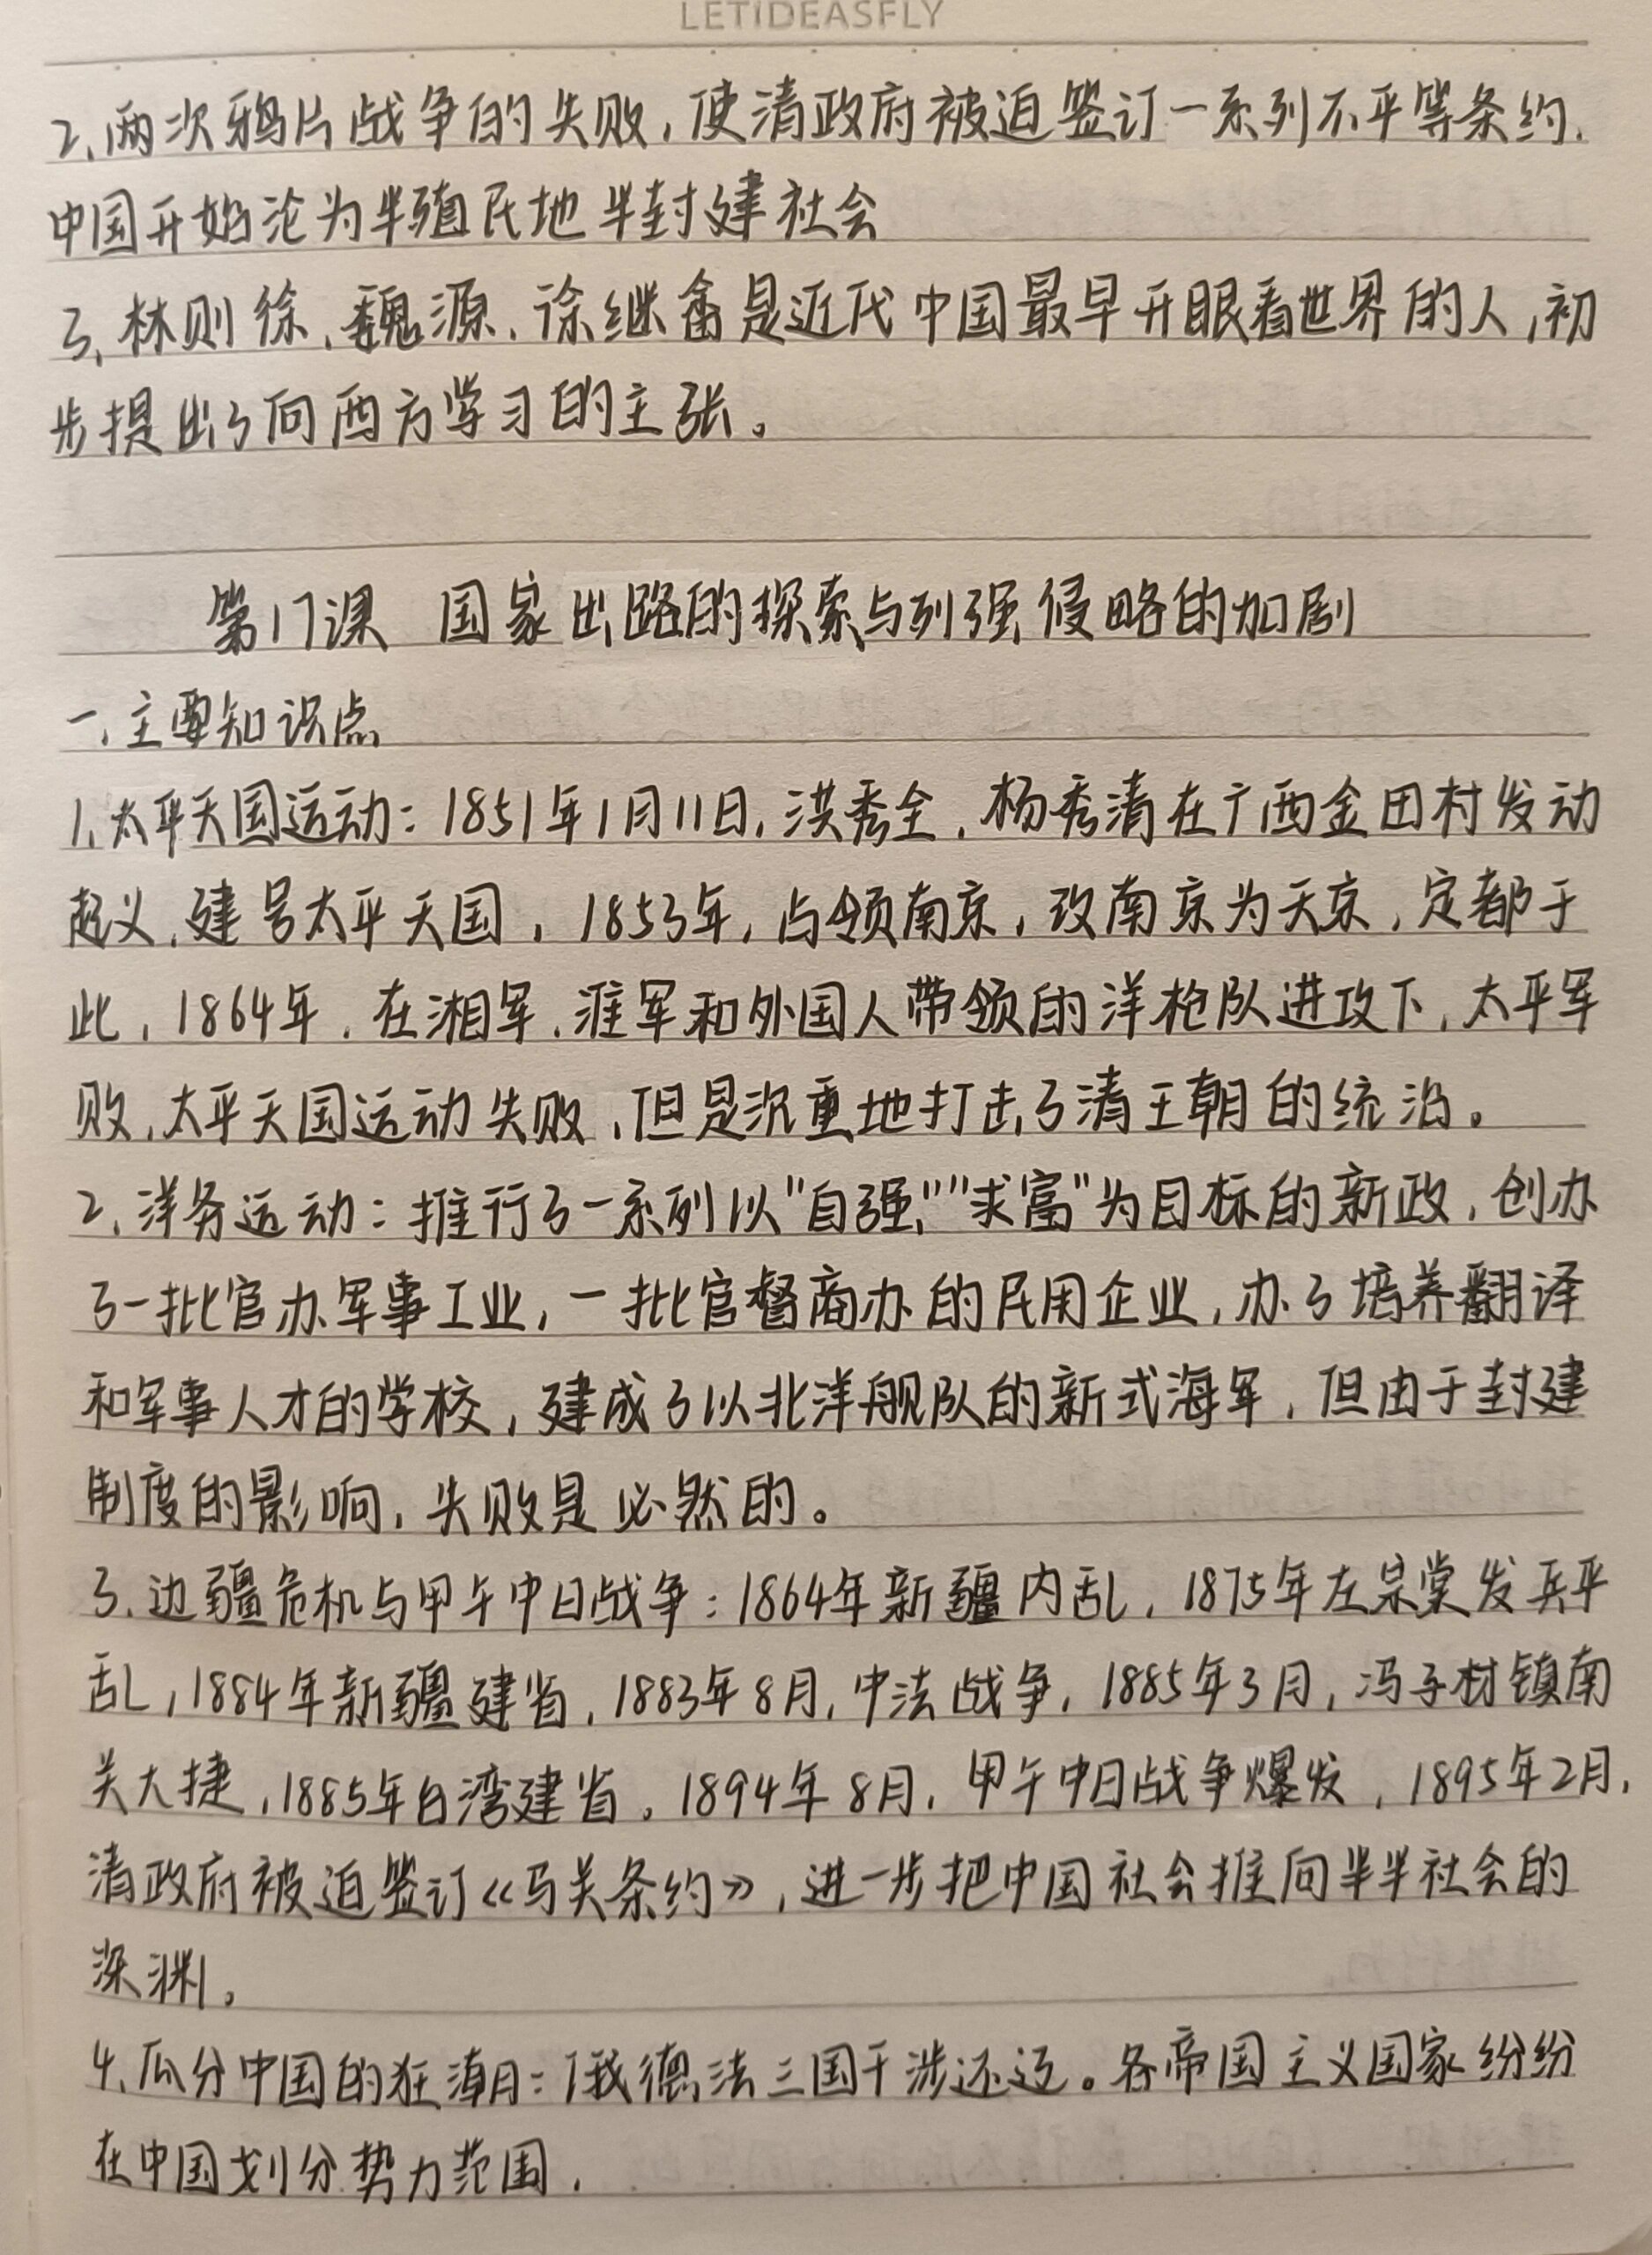 LETIDEASFLY
2、两次鸦片战争的失败，使清政府被迫签订一系列不平等条约，
中国开始沦为半殖民地半封建社会
3、林则徐、魏源、徐继畬是近代中国最早开眼看世界的人，初
步提出了向西方学习的主张。
第17课 国家出路的探索与列强侵略的加剧
一、主要知识点
1、太平天国运动：1851年1月11日，洪秀全、杨秀清在广西金田村发动
起义，建号太平天国，1853年，占领南京，改南京为天京，定都于
此，1864年，在湘军、淮军和外国人带领的洋枪队进攻下，太平军
败，太平天国运动失败，但是沉重地打击了清王朝的统治。
2、洋务运动：推行了一系列以"自强""求富"为目标的新政，创办
了一批官办军事工业，一批官督商办的民用企业，办了培养翻译
和军事人才的学校，建成了以北洋舰队的新式海军，但由于封建
制度的影响，失败是必然的。
3、边疆危机与甲午中日战争：1864年新疆内乱，1875年左宗棠发兵平
乱，1884年新疆建省，1883年8月，中法战争，1885年3月，冯子材镇南
关大捷，1885年台湾建省。1894年8月，甲午中日战争爆发，1895年2月，
清政府被迫签订《马关条约》，进一步把中国社会推向半半社会的
深渊。
4、瓜分中国的狂潮：俄德法三国干涉还辽。各帝国主义国家纷纷
在中国划分势力范围。